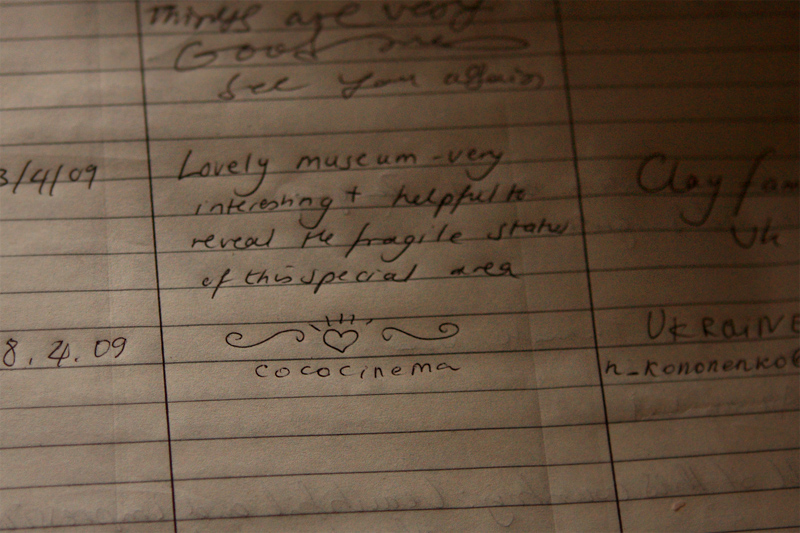 Things are very
Good
See you again
3/4/09
Lovely museum - very
interesting + helpful to
reveal the fragile status
of this special area
Clay fam
Uk
8.4.09
cococinema
UKRAINE
n_kononenko@